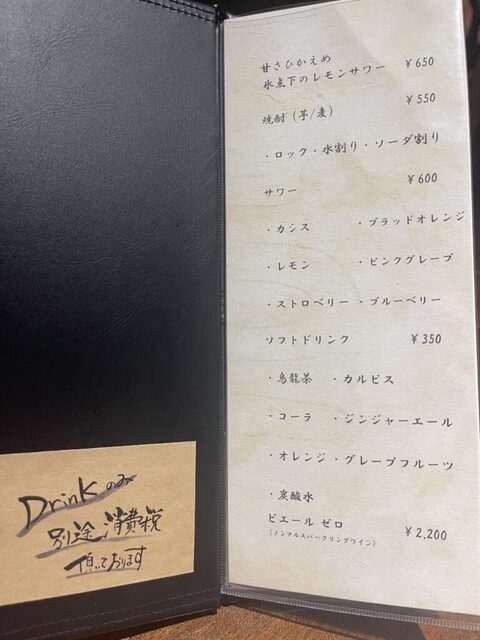 甘さひかえめ
氷点下のレモンサワー ¥650
焼酎(芋/麦) ¥550
・ロック・水割り・ソーダ割り
サワー ¥600
・カシス ・ブラッドオレンジ
・レモン ・ピンクグレープ
・ストロベリー ・ブルーベリー
ソフトドリンク ¥350
・烏龍茶 ・カルピス
・コーラ ・ジンジャーエール
・オレンジ ・グレープフルーツ
・炭酸水
ピエール ゼロ ¥2,200
(ノンアルスパークリングワイン)
Drinkのみ
別途 消費税
頂いております